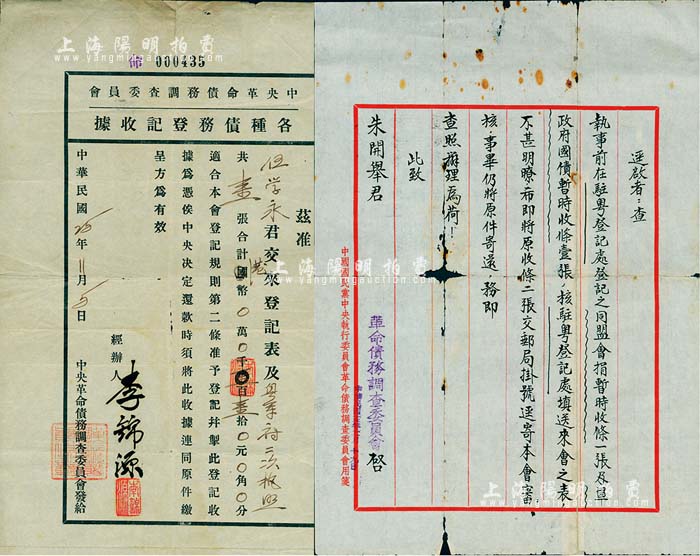 000435
中央革命債務調查委員會
各種債務登記收據
茲准
伍学永君交來登記表及
共壹張合計國幣0萬0千0百壹拾0元0角0分
適合本會登記規則第二條准予登記幷掣此登記收
據爲憑俟中央決定還款時須將此收據連同原件繳
呈方爲有效
中華民國25年11月5日
經辦人 李錦源
中央革命債務調查委員會發給
逕啟者：查
執事前在駐粵登記處登記之同盟會捐暫時收條一張及軍
政府國債暫時收條壹張，核駐粵登記處填送來會之表，
不甚明瞭，希即將原收條二張交郵局掛號逕寄本會審
核，事畢仍將原件寄還，務即
查照辦理爲荷！
此致
朱開舉君
革命債務調查委員會啓
中國國民黨中央執行委員會革命債務調查委員會用箋
上海陽明拍賣
www.yangmingauction.com
上海陽明拍賣
www.yangmingauction.com
上海陽明拍賣
www.yangmingauction.com
上海陽明拍賣
www.yangmingauction.com